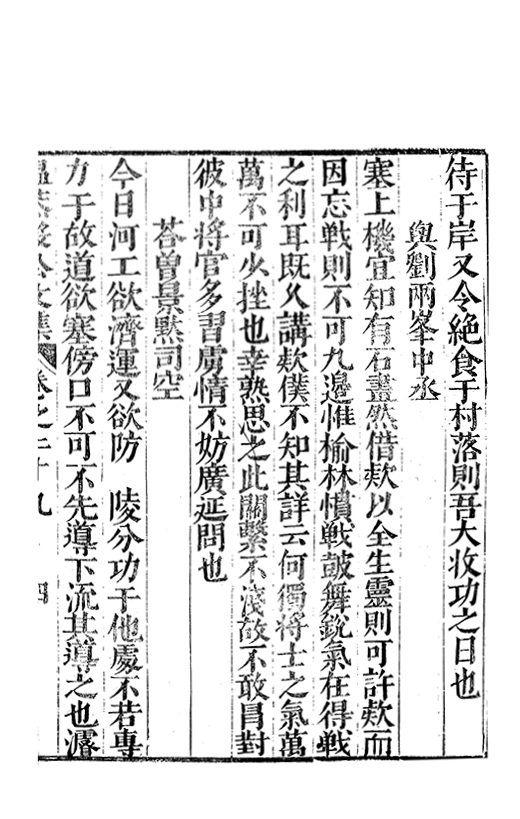 待于岸又令絕食于村落則吾大收功之日也
與劉兩峯中丞
塞上機宜知有石畫然借欵以全生靈則可許欵而
因忘戰則不可九邊惟榆林慣戰鼓舞銳氣在得戰
之利耳旣久講欵僕不知其詳云何獨將士之氣萬
萬不可少挫也幸熟思之此關繫不淺故不敢冒對
彼中將官多習虜情不妨廣延問也
荅曾景默司空
今日河工欲濟運又欲防 陵分功于他處不若專
力于故道欲塞傍口不可不先導下流其導之也濬
文集 卷之二十九 四